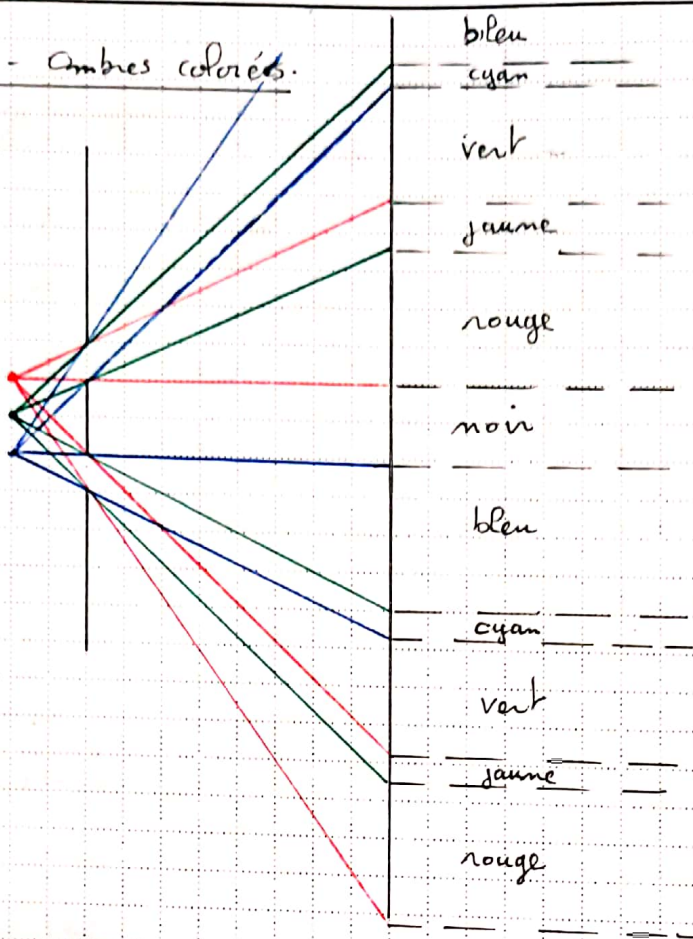 bleu
- Ombres colorés.
cyan
vert
jaune
rouge
noir
bleu
cyan
vert
jaune
rouge